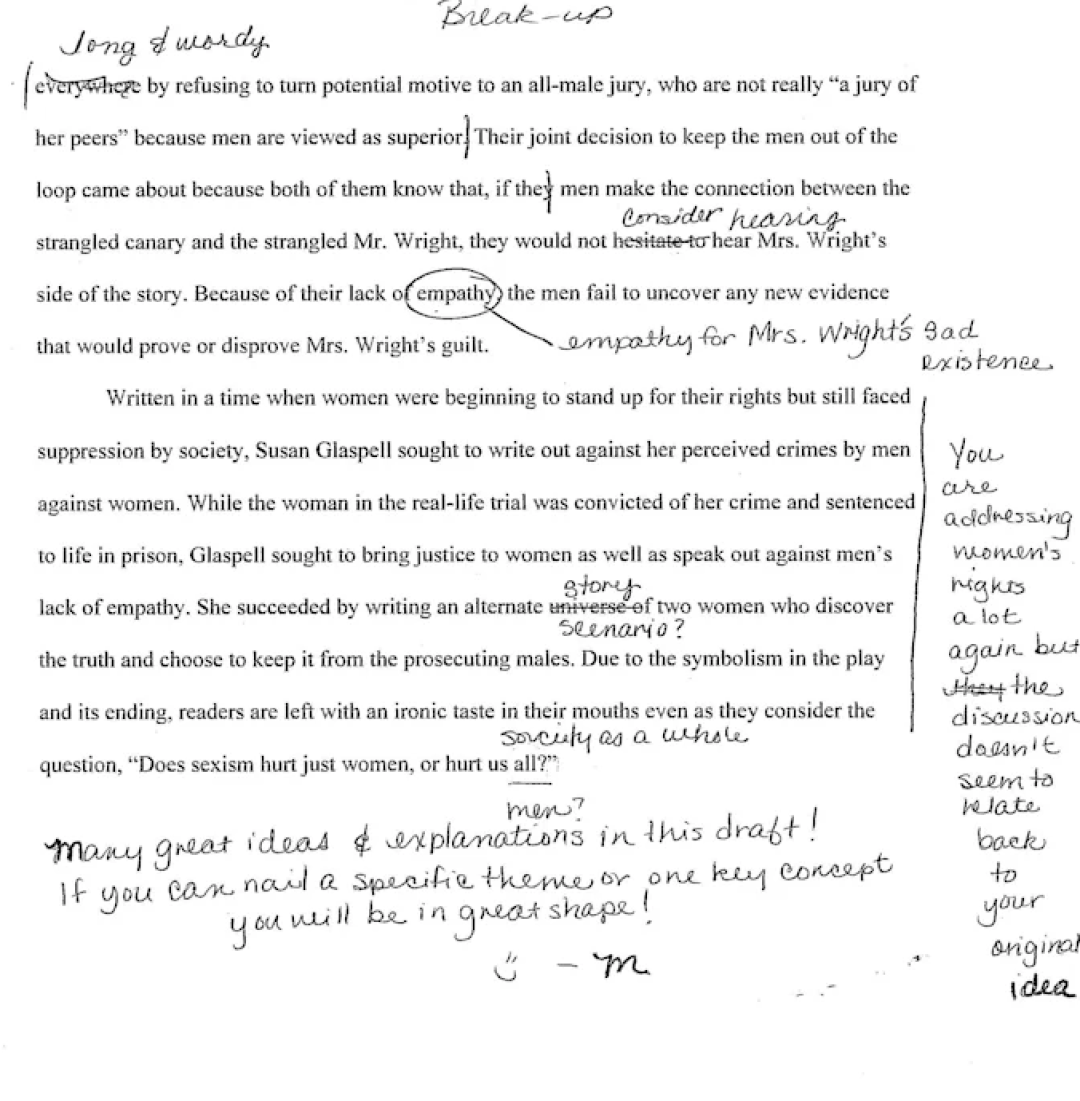 Break-up
Long & wordy
everywhere by refusing to turn potential motive to an all-male jury, who are not really “a jury of
her peers” because men are viewed as superior. Their joint decision to keep the men out of the
loop came about because both of them know that, if they men make the connection between the
Consider hearing
strangled canary and the strangled Mr. Wright, they would not hesitate to hear Mrs. Wright’s
side of the story. Because of their lack of empathy, the men fail to uncover any new evidence
that would prove or disprove Mrs. Wright’s guilt.
empathy for Mrs. Wright's sad
existence.
Written in a time when women were beginning to stand up for their rights but still faced
suppression by society, Susan Glaspell sought to write out against her perceived crimes by men
against women. While the woman in the real-life trial was convicted of her crime and sentenced
to life in prison, Glaspell sought to bring justice to women as well as speak out against men’s
story
lack of empathy. She succeeded by writing an alternate universe of two women who discover
scenario?
the truth and choose to keep it from the prosecuting males. Due to the symbolism in the play
and its ending, readers are left with an ironic taste in their mouths even as they consider the
society as a whole
question, “Does sexism hurt just women, or hurt us all?”
men?
You
are
addressing
women's
rights
a lot
again but
they the
discussion
doesn't
seem to
relate
back
to
your
original
idea
Many great ideas & explanations in this draft!
If you can nail a specific theme or one key concept
you will be in great shape!
- M